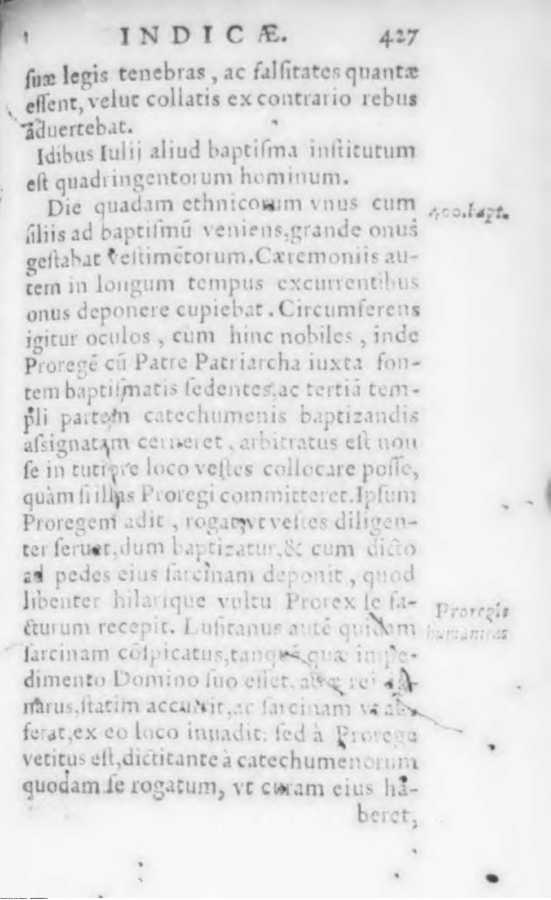 INDICÆ. 427
ſuæ legis tenebras, ac falſitates quantæ
eſſent, velut collatis ex contrario rebus
aduertebat.
Idibus Iulij aliud baptiſma inſtitutum
eſt quadringentorum hominum.
Die quadam ethnicorum vnus cum
filiis ad baptiſmũ veniens, grande onus
geſtabat veſtimẽtorum. Cæremoniis au-
tem in longum tempus excurrentibus
onus deponere cupiebat. Circumferens
igitur oculos, cum hinc nobiles, inde
Proregẽ cũ Patre Patriarcha iuxta fon-
tem baptiſmatis ſedentes, ac tertiã tem-
pli partem catechumenis baptizandis
aſsignatam cerneret, arbitratus eſt non
ſe in tutiore loco veſtes collocare poſſe,
quàm ſi illas Proregi committeret. Ipſum
Proregem adit, rogat, vt veſtes diligen-
ter ſeruet, dum baptizatur, & cum dicto
ad pedes eius ſarcinam deponit, quod
libenter hilarique vultu Prorex ſe fa-
cturum recepit. Luſitanus autẽ quidam
ſarcinam cõſpicatus, tanquã quæ impe-
dimento Domino ſuo eſſet,
narus, ſtatim accurrit, ac ſarcinam vt au-
ferat, ex eo loco inuadit: ſed à Prorege
vetitus eſt, dictitante à catechumenorum
quodam ſe rogatum, vt curam eius ha-
beret,
400. bapt.
Proregis
humanitas